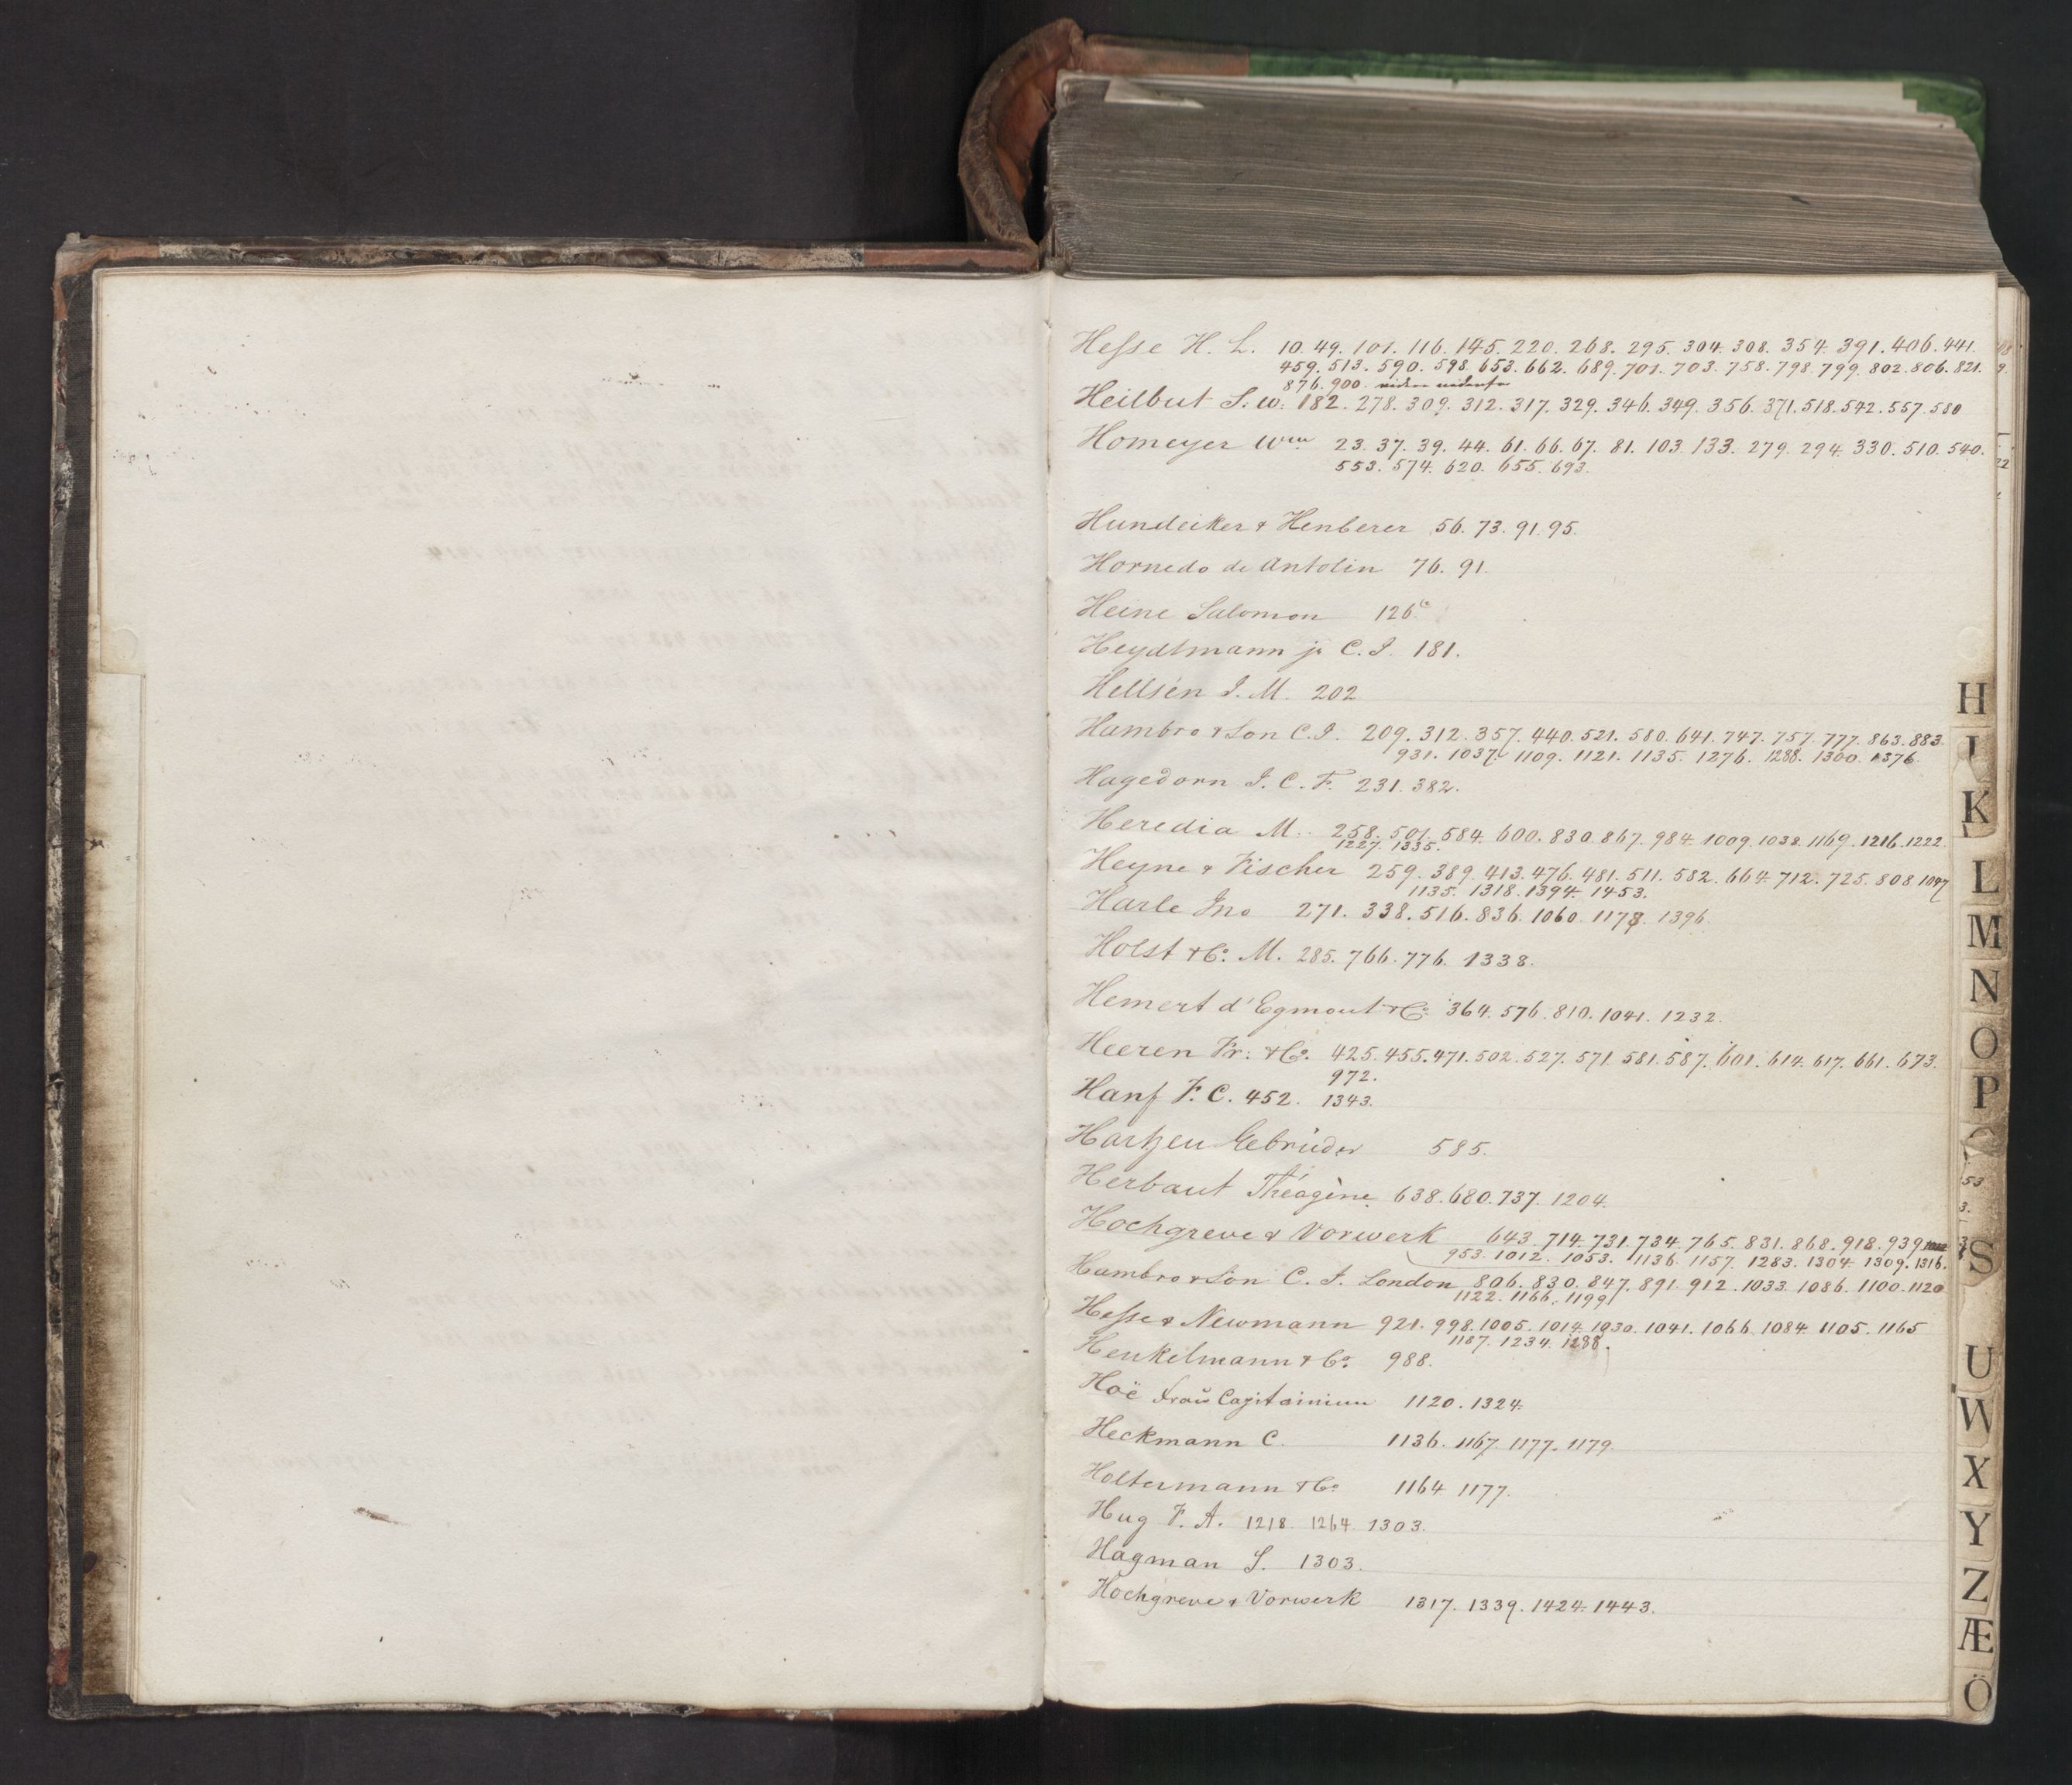 Hesse H. L. 10. 49. 101. 116. 145. 220. 268. 295. 304. 308. 354. 391. 406. 441.
459. 513. 590. 598. 653. 662. 689. 701. 703. 758. 798. 799. 802. 806. 821.
876. 900.
Heilbut S. W. 182. 278. 309. 312. 317. 329. 346. 349. 356. 371. 518. 542. 557. 580
Homeyer Wm 23. 37. 39. 44. 61. 66. 67. 81. 103. 133. 279. 294. 330. 510. 540.
553. 574. 620. 655. 693.
Hundeiker & Henberer 56. 73. 91. 95.
Hornedo de Antolin 76. 91.
Heine Salomon 126
Heydtmann jr C. I. 181.
Hellsén I. M. 202
Hambro & Son C. I. 209. 312. 357. 440. 521. 580. 641. 747. 757. 777. 863. 883.
931. 1037. 1109. 1121. 1135. 1276. 1288. 1300. 1376.
Hagedorn I. C. F. 231. 382.
Heredia M. 258. 501. 584. 600. 830. 867. 984. 1009. 1038. 1169. 1216. 1222.
1227. 1335.
Heyne & Fischer 259. 389. 413. 476. 481. 511. 582. 664. 712. 725. 808. 1047
1135. 1318. 1394. 1453.
Harle Jno 271. 338. 516. 836. 1060. 1173. 1396.
Holst & Co. M. 285. 766. 776. 1338.
Hemert d'Egmont & Co. 364. 576. 810. 1041. 1232.
Heeren Fr: & Co. 425. 455. 471. 502. 527. 571. 581. 587. 601. 614. 617. 661. 673.
972.
Hanf F. C. 452. 1343.
Hartzen Gebrüder 585.
Herbaut Théagène 638. 680. 737. 1204.
Hochgreve & Vorwerk 643. 714. 731. 734. 765. 831. 868. 918. 939.
953. 1012. 1053. 1136. 1157. 1283. 1304. 1309. 1316.
Hambro & Son C. I. London 806. 830. 847. 891. 912. 1033. 1086. 1100. 1120
1122. 1166. 1199
Hesse & Newmann 921. 998. 1005. 1014. 1030. 1041. 1066. 1084. 1105. 1165
1187. 1234. 1288.
Henkelmann & Co. 988.
Hoë Frau Capitainin 1120. 1324.
Heckmann C. 1136. 1167. 1177. 1179.
Holtermann & Co 1164. 1177.
Hug F. A. 1218. 1264. 1303.
Hagman S. 1303.
Hochgreve & Vorwerk 1317. 1339. 1424. 1443.
H
I
K
L
M
N
O
P
S
U
W
X
Y
Z
Æ
Ö